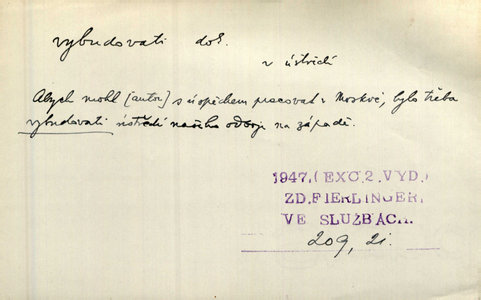 vybudovati dok.
v ústředí
Abych mohl [autor] s úspěchem pracovat v Moskvě, bylo třeba
vybudovati ústředí našeho odboje na západě.
1947, (EXC. 2. VYD.)
ZD. FIERLINGER,
VE SLUŽBÁCH.
209, 21.